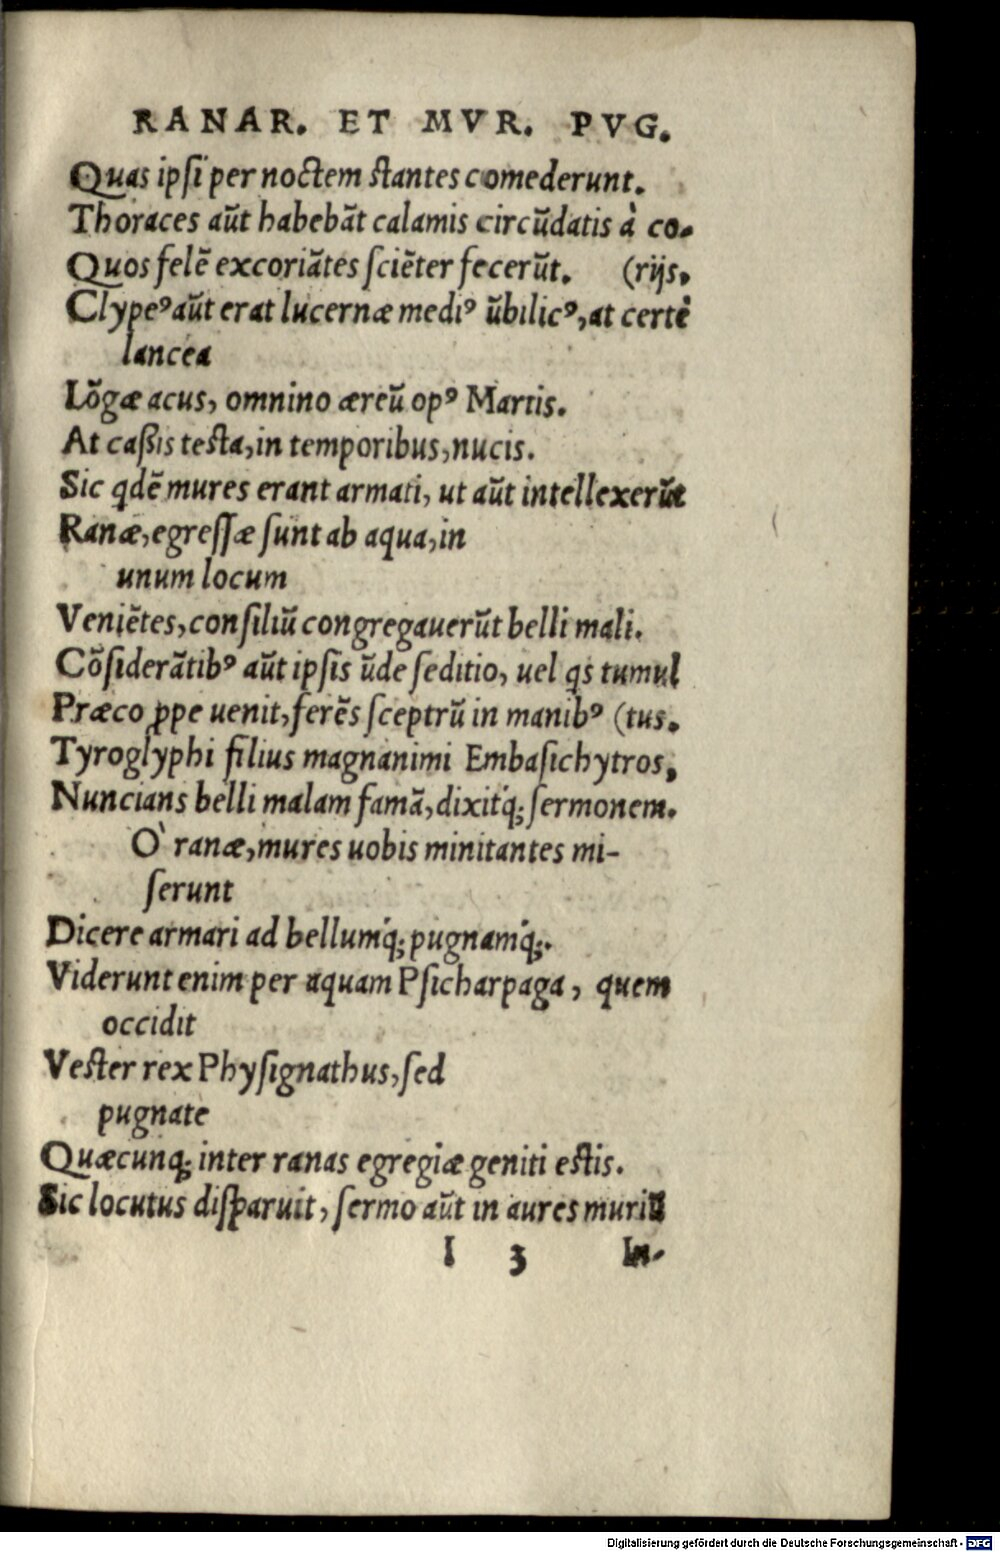 RANAR. ET MVR. PVG.
Quas ipſi per noctem ſtantes comederunt.
Thoraces aũt habebãt calamis circũdatis à co-
Quos felẽ excoriãtes ſciẽter fecerũt. (rijs.
Clypeꝰ aũt erat lucernæ mediꝰ ũbilicꝰ, at certè
lancea
Lõgæ acus, omnino æreũ opꝰ Martis.
At caßis teſta, in temporibus, nucis.
Sic qdẽ mures erant armati, ut aũt intellexerũt
Ranæ, egreſſæ ſunt ab aqua, in
unum locum
Veniẽtes, conſiliũ congregauerũt belli mali.
Cõſiderãtibꝰ aũt ipſis ũde ſeditio, uel qs tumul
Præco ꝓpe uenit, ferẽs ſceptrũ in manibꝰ (tus.
Tyroglyphi filius magnanimi Embaſichytros,
Nuncians belli malam famã, dixitq́; ſermonem.
O' ranæ, mures uobis minitantes mi-
ſerunt
Dicere armari ad bellumq́; pugnamq́;.
Viderunt enim per aquam Pſicharpaga, quem
occidit
Veſter rex Phyſignathus, ſed
pugnate
Quæcunq; inter ranas egregiæ geniti eſtis.
Sic locutus diſparuit, ſermo aũt in aures muriũ
I 3 In-
Digitalisierung gefördert durch die Deutsche Forschungsgemeinschaft - DFG